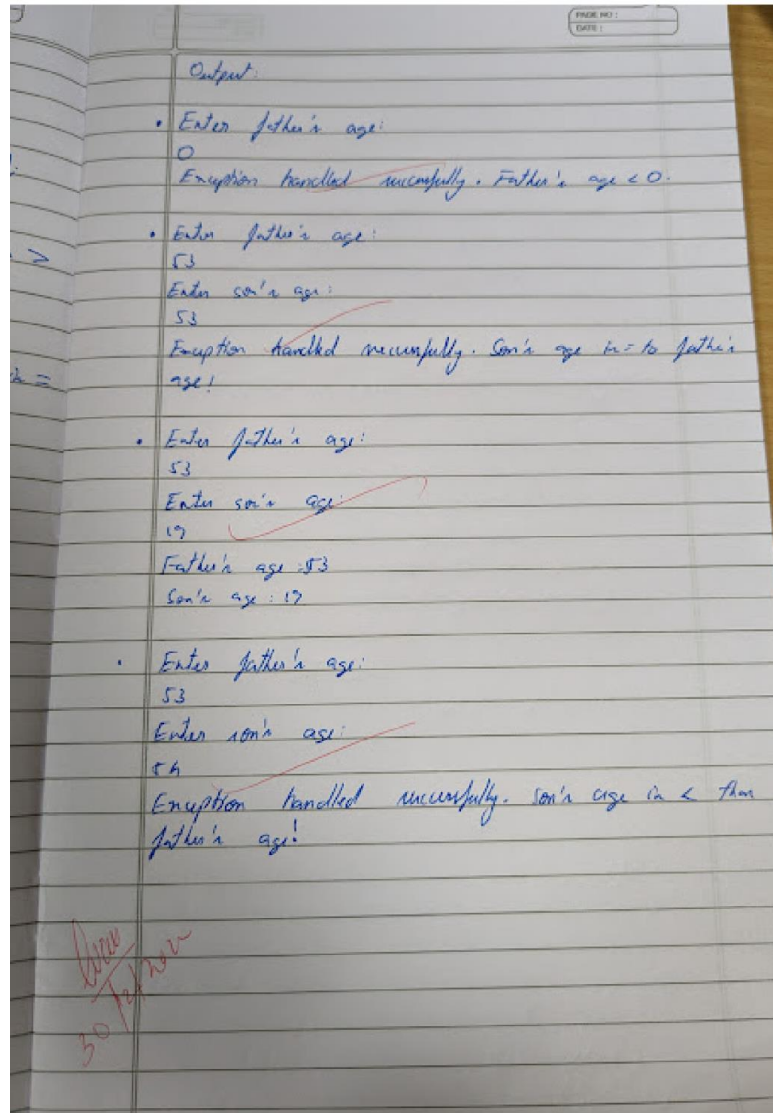 PAGE NO :
DATE :
Output:
• Enter father's age:
0
Exception handled successfully. Father's age < 0.
• Enter father's age:
53
Enter son's age:
53
Exception handled successfully. Son's age is = to father's
age!
• Enter father's age:
53
Enter son's age:
19
Father's age : 53
Son's age : 19
• Enter father's age:
53
Enter son's age:
54
Exception handled successfully. Son's age is < than
father's age!
>
=